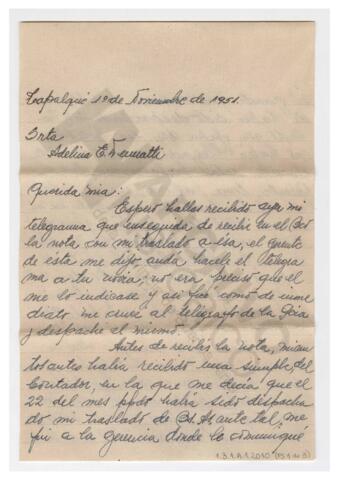 Tapalqué 1º de Noviembre de 1951.
Srta
Adelina E.
Querida mia:
Espero hallas recibido ayer mi
telegrama que enseguida de recibir en el Bco
la nota con mi traslado a esa, el Gerente
de esta me dijo andá hacele el telegra
ma a tu novia, no era preciso que el
me lo indicase y asi fué como de inme
diato me crucé al telégrafo de la Pcia
y despaché el mismo.
Antes de recibir la nota, minu
tos antes había recibido una simple, del
Contador, en la que me decía que el
22 del mes ppdo había sido despacha
do mi traslado de Bs. As ante tal, me
fui a la gerencia donde le comuniqué
1.3.1.A.1.2010